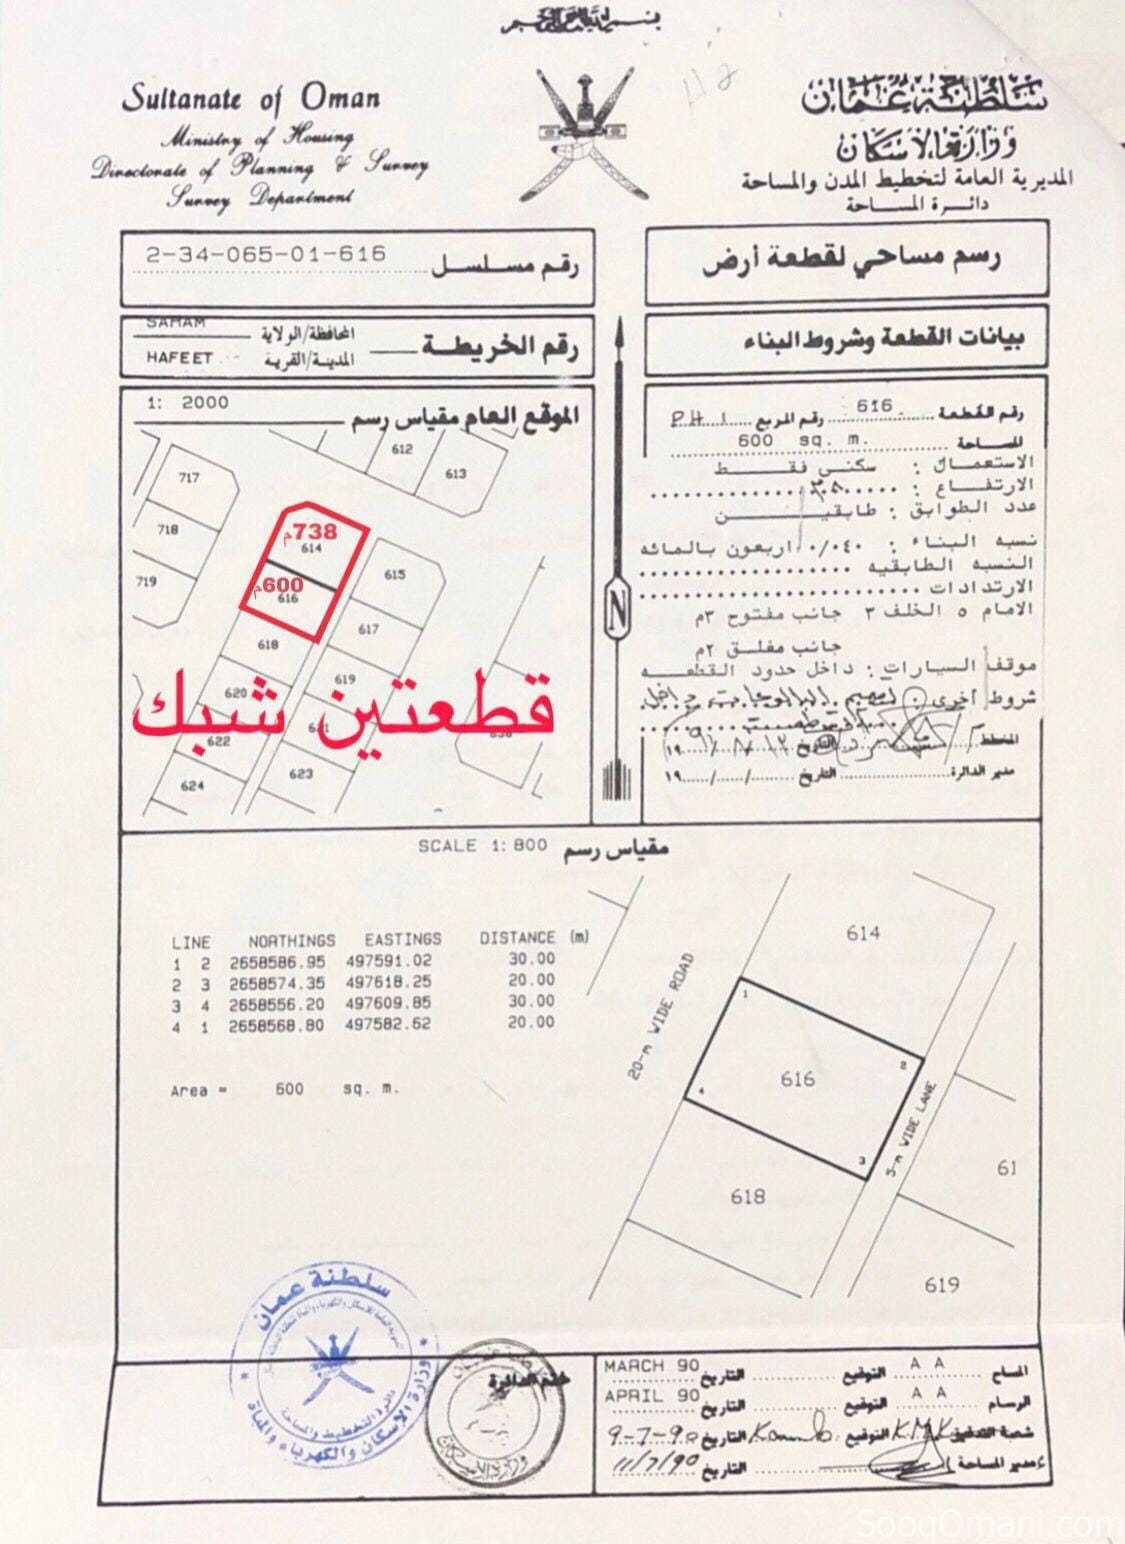 بسم الله الرحمن الرحيم
Sultanate of Oman
Ministry of Housing
Directorate of Planning & Survey
Survey Department
سلطنة عمان
وزارة الاسكان
المديرية العامة لتخطيط المدن والمساحة
دائرة المساحة
2-34-065-01-616 رقم مسلسل
رسم مساحي لقطعة أرض
SAHAM المحافظة/الولاية
HAFEET المدينة/القرية
رقم الخريطة
بيانات القطعة وشروط البناء
1: 2000 الموقع العام مقياس رسم
رقم القطعة 616 رقم المربع PH 1
المساحة 600 sq. m.
الاستعمال : سكني فقط
الارتفاع :
عدد الطوابق : طابقين
نسبه البناء : ٠/٠٤٠ اربعون بالمائه
النسبه الطابقيه
الارتدادات
الامام ٥ الخلف ٣ جانب مفتوح ٣م
جانب مغلق ٢م
موقف السيارات : داخل حدود القطعه
شروط أخرى :
المخطط التاريخ
مدير الدائرة التاريخ ١٩
612
613
717
718
719
738م
614
600م
616
615
617
618
619
620
621
622
623
624
قطعتين شبك
N
SCALE 1: 800 مقياس رسم
LINE NORTHINGS EASTINGS DISTANCE (m)
1 2 2658586.95 497591.02 30.00
2 3 2658574.35 497618.25 20.00
3 4 2658556.20 497609.85 30.00
4 1 2658568.80 497582.62 20.00
Area = 600 sq. m.
614
20-m WIDE ROAD
1
2
616
4
3
5-m WIDE LANE
618
61
619
سلطنة عمان
وزارة الاسكان والكهرباء والمياة
دائرة التخطيط والمساحة
ختم الدائرة
المساح A A التوقيع التاريخ MARCH 90
الرسام A A التوقيع التاريخ APRIL 90
شعبة التدقيق K.M.K التوقيع التاريخ 9-7-90
مدير المساحة التاريخ 11/7/90
SooqOmani.com